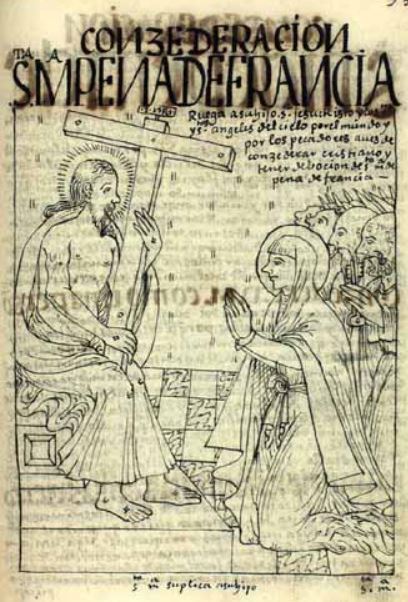 CONZEDERACION
TA A
S. M PENA DE FRANCIA
Ruega a su hijo s. jesucristo y los
y s. angeles del cielo por el mundo y
por los pecadores aues de
conzederar cristiano y
tener debocion de s. m. de
pena de francia
s. m. suplica a su hijo
s. m.